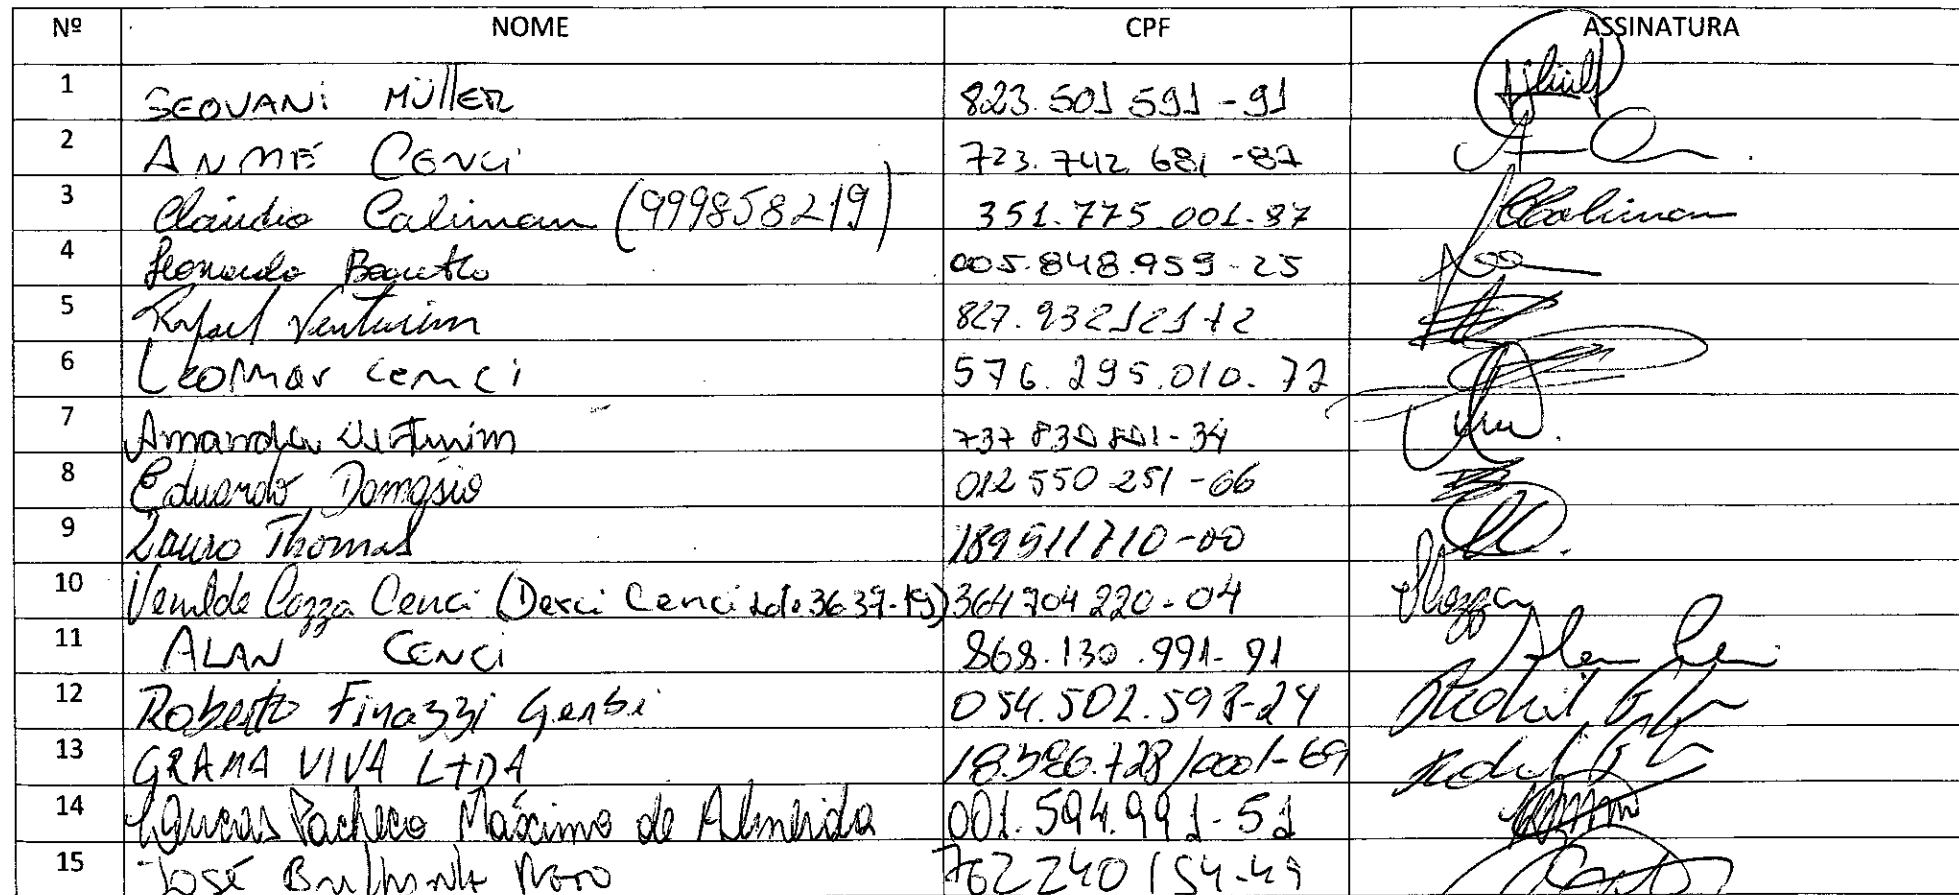 Nº NOME CPF ASSINATURA
1 GEOVANI MÜLLER 823.501 591-91
2 ANME CENCI 723.742 681-87
3 Claudio Caliman (999858219) 351.775.001-87 CCaliman
4 Leonardo 005.848.959-25
5 Rafael Venturim 827.932121 72
6 Leomar Cenci 576.295.010.72
7 Amanda Venturim 737 830 801-34
8 Eduardo Damásio 012 550 251-66
9 Lauro Thomas 189511710-00
10 Venilde Cozza Cenci (Derci Cenci 36 37-19) 364 704 220-04 VCozza
11 ALAN CENCI 868.130.991-91 Alan Cenci
12 Roberto Finazzi Gerbi 054.502.598-24
13 GRAMA VIVA LTDA 18.586.728/0001-69
14 Lauças Pacheco Máximo de Almeida 001.594.991-51
15 José Brilhante Neto 762 240 154-49